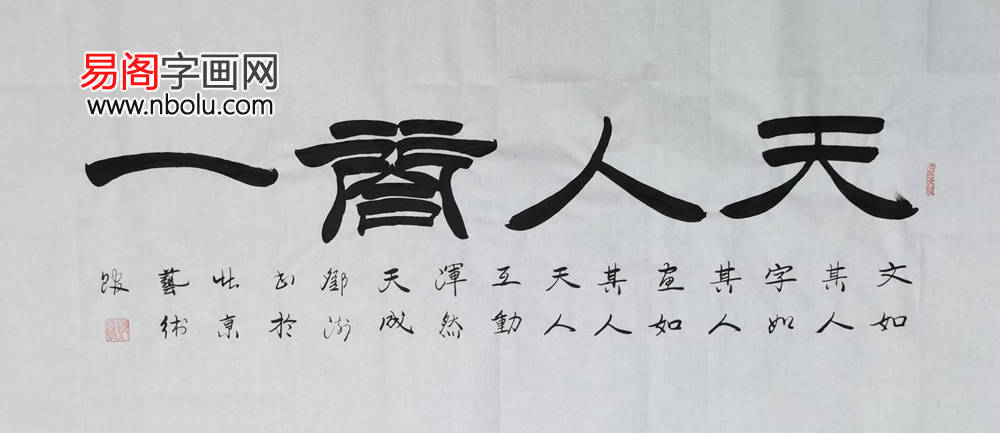 易阁字画网
www.nbolu.com
天人一
文如
其人
字如
其人
画如
其人
天人
互動
渾然
天成
书於
北京
藝術